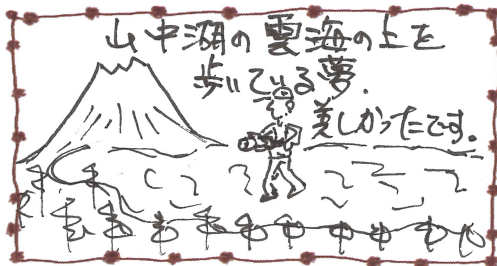 山中湖の雲海の上を
歩いている夢.
美しかったです。